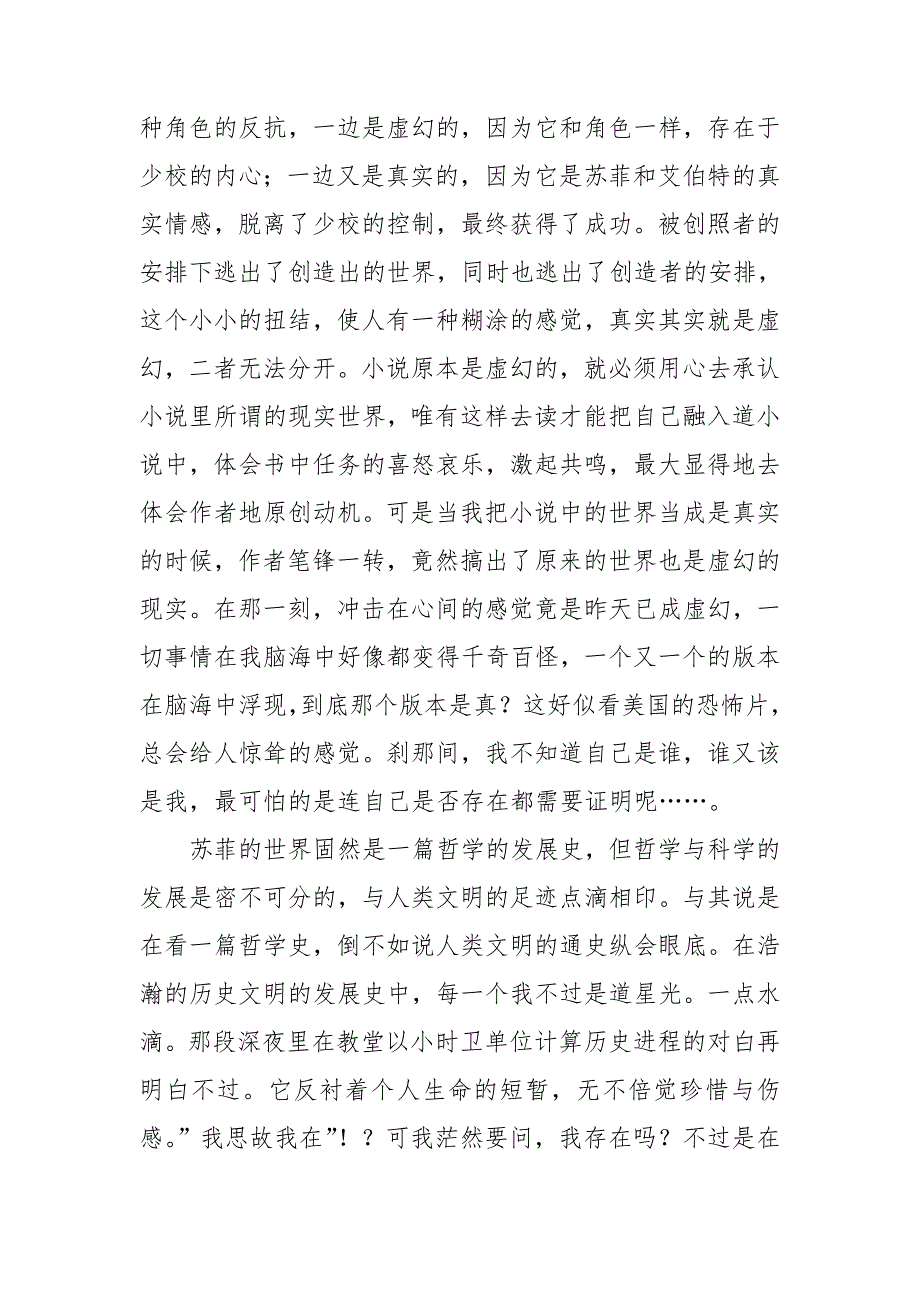 种角色的反抗，一边是虚幻的，因为它和角色一样，存在于
少校的内心；一边又是真实的，因为它是苏菲和艾伯特的真
实情感，脱离了少校的控制，最终获得了成功。被创照者的
安排下逃出了创造出的世界，同时也逃出了创造者的安排，
这个小小的扭结，使人有一种糊涂的感觉，真实其实就是虚
幻，二者无法分开。小说原本是虚幻的，就必须用心去承认
小说里所谓的现实世界，唯有这样去读才能把自己融入道小
说中，体会书中任务的喜怒哀乐，激起共鸣，最大显得地去
体会作者地原创动机。可是当我把小说中的世界当成是真实
的时候，作者笔锋一转，竟然搞出了原来的世界也是虚幻的
现实。在那一刻，冲击在心间的感觉竟是昨天已成虚幻，一
切事情在我脑海中好像都变得千奇百怪，一个又一个的版本
在脑海中浮现，到底那个版本是真？这好似看美国的恐怖片，
总会给人惊耸的感觉。刹那间，我不知道自己是谁，谁又该
是我，最可怕的是连自己是否存在都需要证明呢……。
苏菲的世界固然是一篇哲学的发展史，但哲学与科学的
发展是密不可分的，与人类文明的足迹点滴相印。与其说是
在看一篇哲学史，倒不如说人类文明的通史纵会眼底。在浩
瀚的历史文明的发展史中，每一个我不过是道星光。一点水
滴。那段深夜里在教堂以小时卫单位计算历史进程的对白再
明白不过。它反衬着个人生命的短暂，无不倍觉珍惜与伤
感。”我思故我在”！？可我茫然要问，我存在吗？不过是在